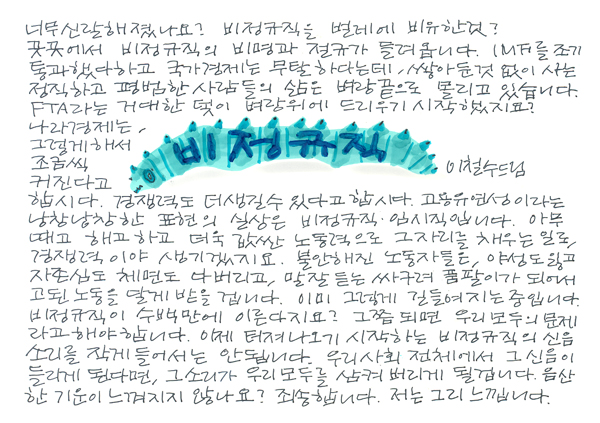 너무 신랄해졌나요? 비정규직을 벌레에 비유한것?
곳곳에서 비정규직의 비명과 절규가 들려옵니다. IMF를 조기
통과했다하고 국가경제는 무탈하다는데, 쌓아둔것 없이 사는
정직하고 평범한 사람들의 삶은 벼랑끝으로 몰리고 있습니다.
FTA라는 거대한 덫이 벼랑위에 드리우기 시작했지요?
나라경제는,
그렇게해서
조금씩
커진다고
비정규직
이철수드림
합시다. 경쟁력도 더생길수 있다고 합시다. 고용유연성이라는
낭창낭창한 표현의 실상은 비정규직·임시직입니다. 아무
때고 해고하고 더욱 값싼 노동력으로 그자리를 채우는 일로,
경쟁력이야 생기겠지요. 불안해진 노동자들은, 야성도 잃고
자존심도 체면도 다버리고, 말잘 듣는 싸구려 품팔이가 되어서
고된 노동을 달게 받을 겁니다. 이미 그렇게 길들여지는 중입니다.
비정규직이 수백만에 이른다지요? 그쯤 되면 우리모두의 문제
라고 해야합니다. 이제 터져나오기 시작하는 비정규직의 신음
소리를 작게 들어서는 안됩니다. 우리사회 전체에서 그신음이
들리게 된다면, 그소리가 우리모두를 삼켜 버리게 될겁니다. 음산
한 기운이 느껴지지 않나요? 죄송합니다. 저는 그리 느낍니다.